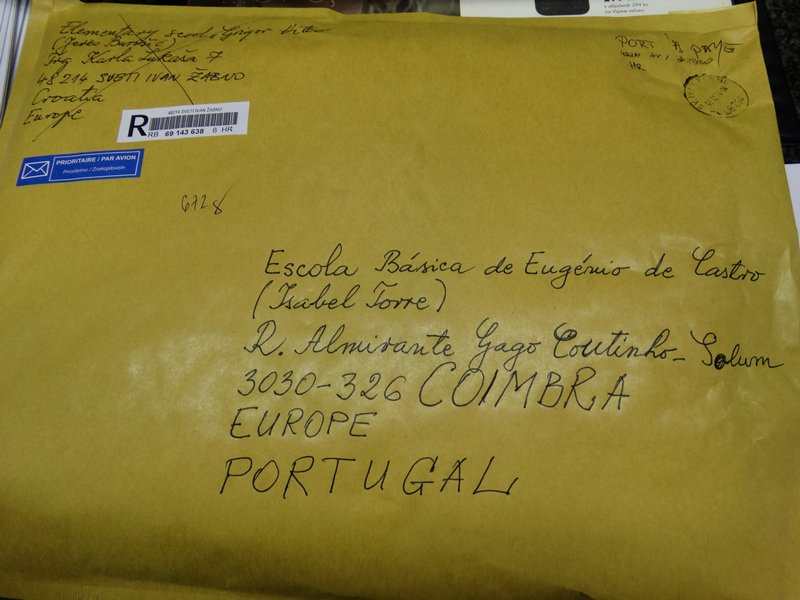 Elementary scool Grigor Vitez
Trg Karla Lukaša 7
48214 SVETI IVAN ŽABNO
Croatia
Europe
PORT PAYE
HR
48214 SVETI IVAN ŽABNO
R
RB 69 143 638 6 HR
PRIORITAIRE / PAR AVION
Prioritetno / Zrakoplovom
6728
Escola Básica de Eugénio de Castro
(Isabel Torre)
R. Almirante Gago Coutinho - Solum
3030-326 COIMBRA
EUROPE
PORTUGAL